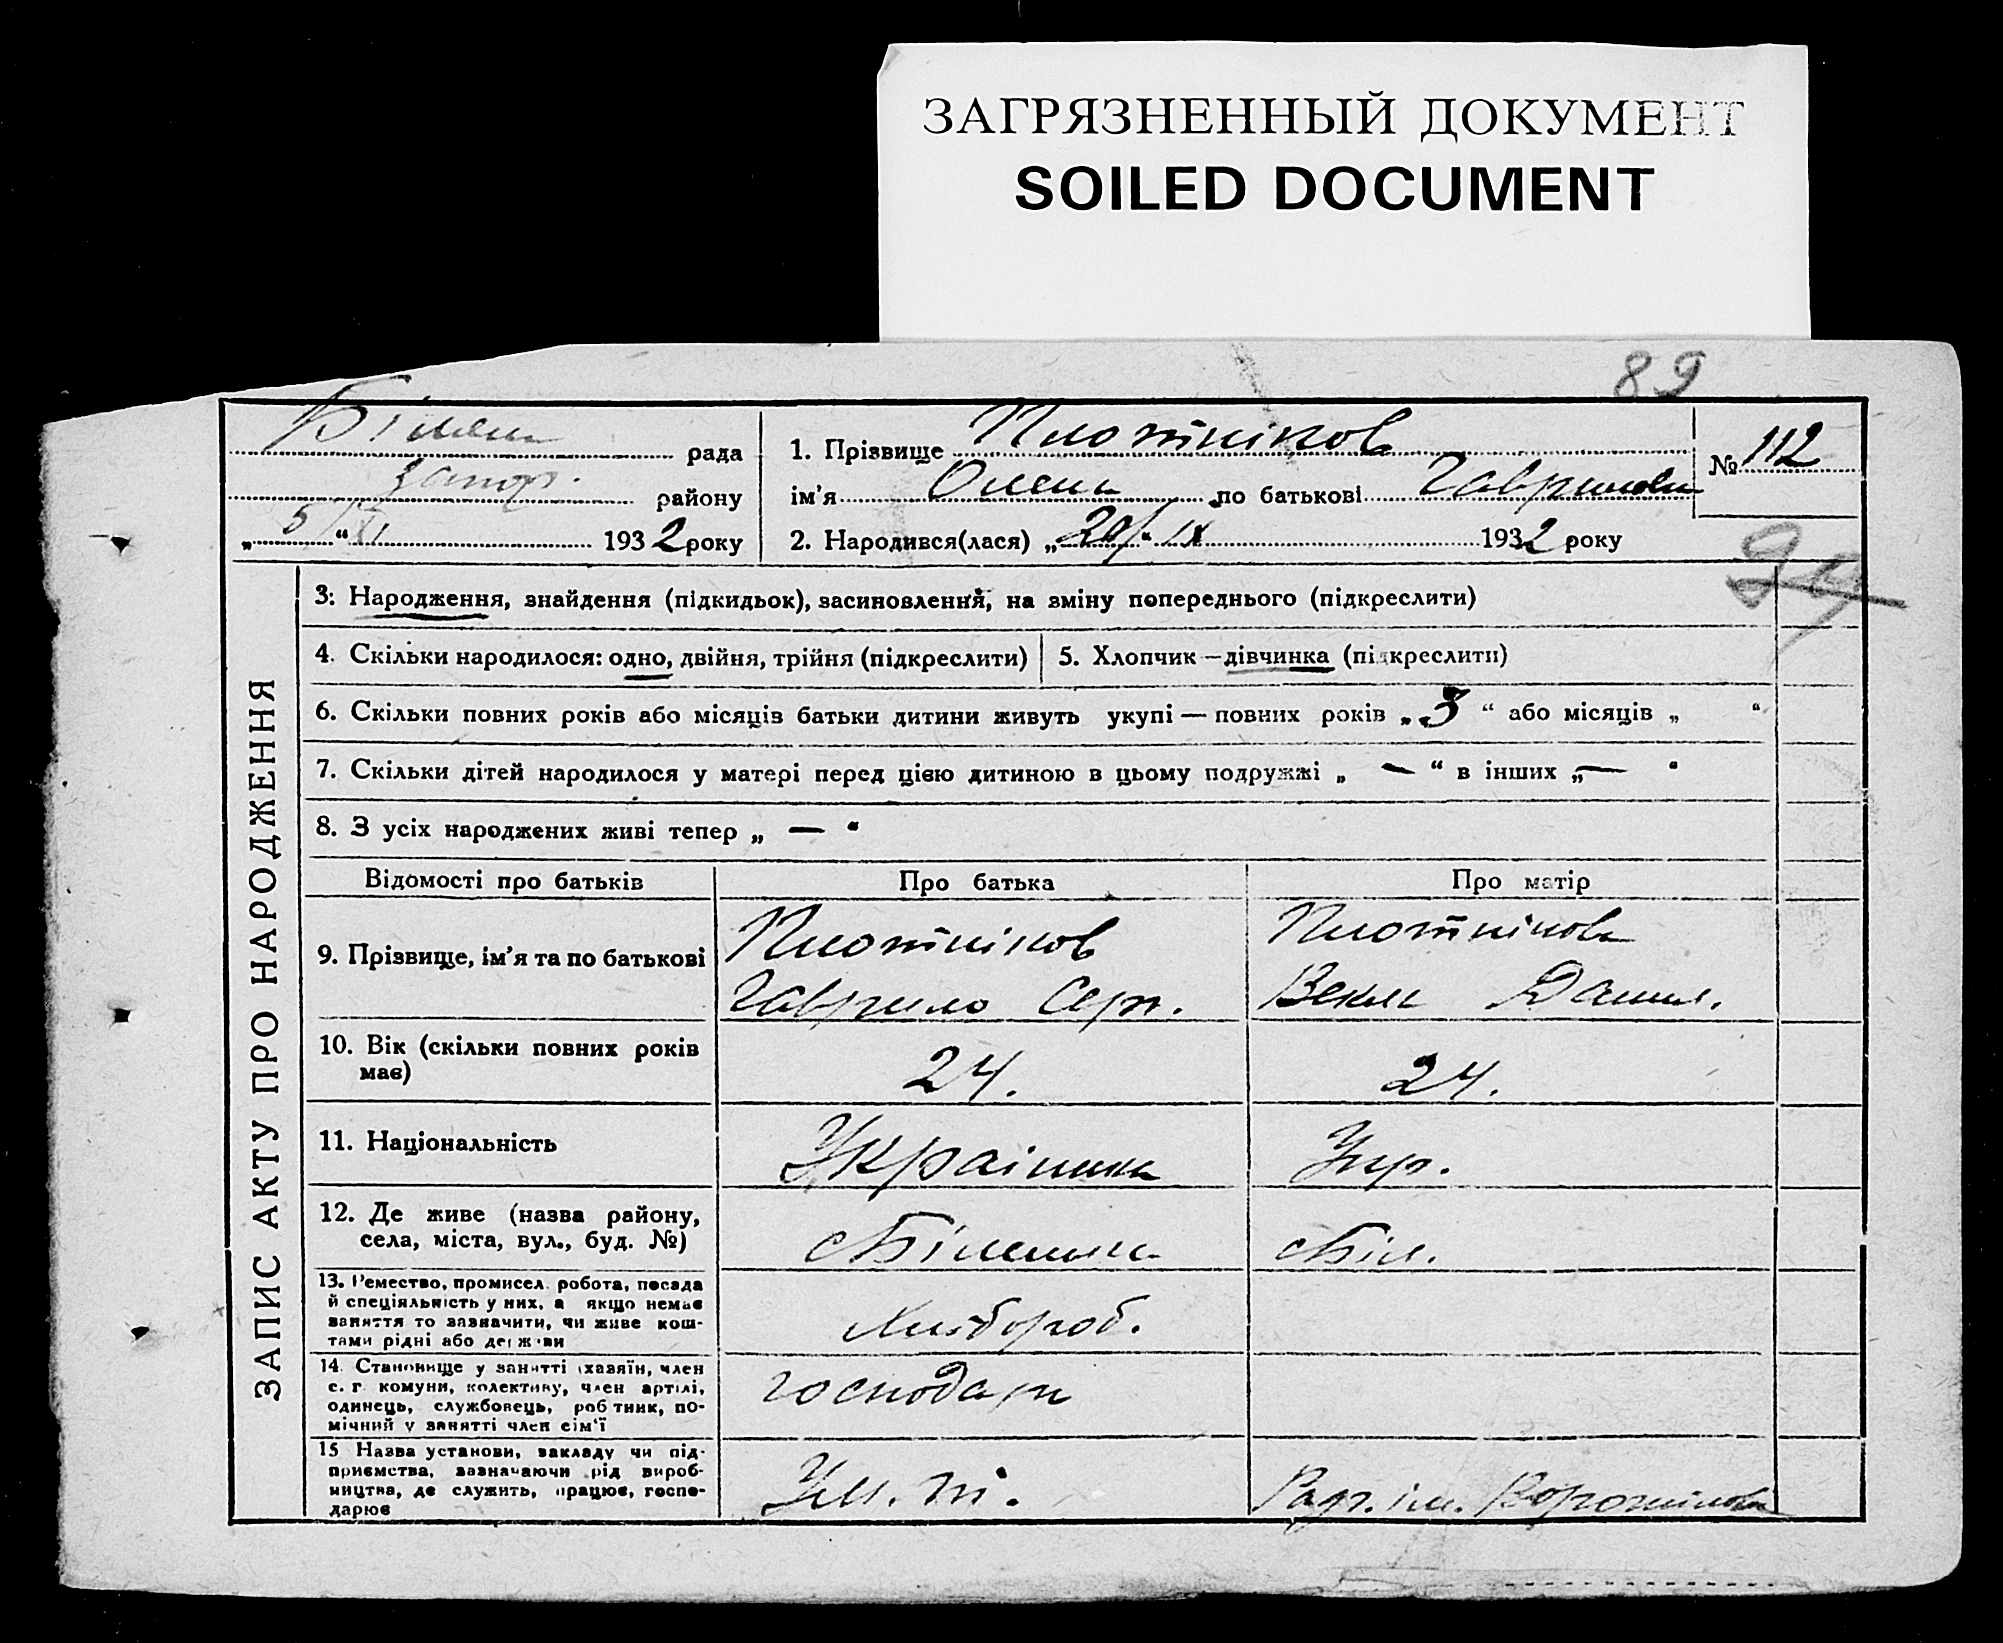 ЗАГРЯЗНЕННЫЙ ДОКУМЕНТ
SOILED DOCUMENT
89
рада
Запор. району
„5/XI“ 1932 року
1. Прізвище Плотніков
ім'я Олена по батькові Гаврилови
№ 112
2. Народився(лася) „20/“ IX 1932 року
94
ЗАПИС АКТУ ПРО НАРОДЖЕННЯ
3. Народження, знайдення (підкидьок), засиновлення, на зміну попереднього (підкреслити)
4. Скільки народилося: одно, двійня, трійня (підкреслити)
5. Хлопчик — дівчинка (підкреслити)
6. Скільки повних років або місяців батьки дитини живуть укупі — повних років „3“ або місяців „ “
7. Скільки дітей народилося у матері перед цією дитиною в цьому подружжі „ — “ в інших „ — “
8. З усіх народжених живі тепер „ — “
Відомості про батьків
Про батька
Про матір
9. Прізвище, ім'я та по батькові
Плотніков
Гаврило Сер.
Плотнікова
Векла Данил.
10. Вік (скільки повних років
має)
24.
24.
11. Національність
Українська
Укр.
12. Де живе (назва району,
села, міста, вул., буд. №)
с Біленька
с Біл.
13. Ремество, промисел, робота, посада
й спеціяльність у них, а якщо немає
заняття то зазначити, чи живе кош-
тами рідні або держави
Хлібороб.
14. Становище у занятті (хазяїн, член
с. г. комуни, колективу, член артілі,
одинець, службовець, робітник, по-
мічний у занятті член сім'ї
господар
15 Назва установи, закладу чи під-
приємства, зазначаючи рід вироб-
ництва, де служить, працює, госпо-
дарює
Радг. ім. Ворошилова